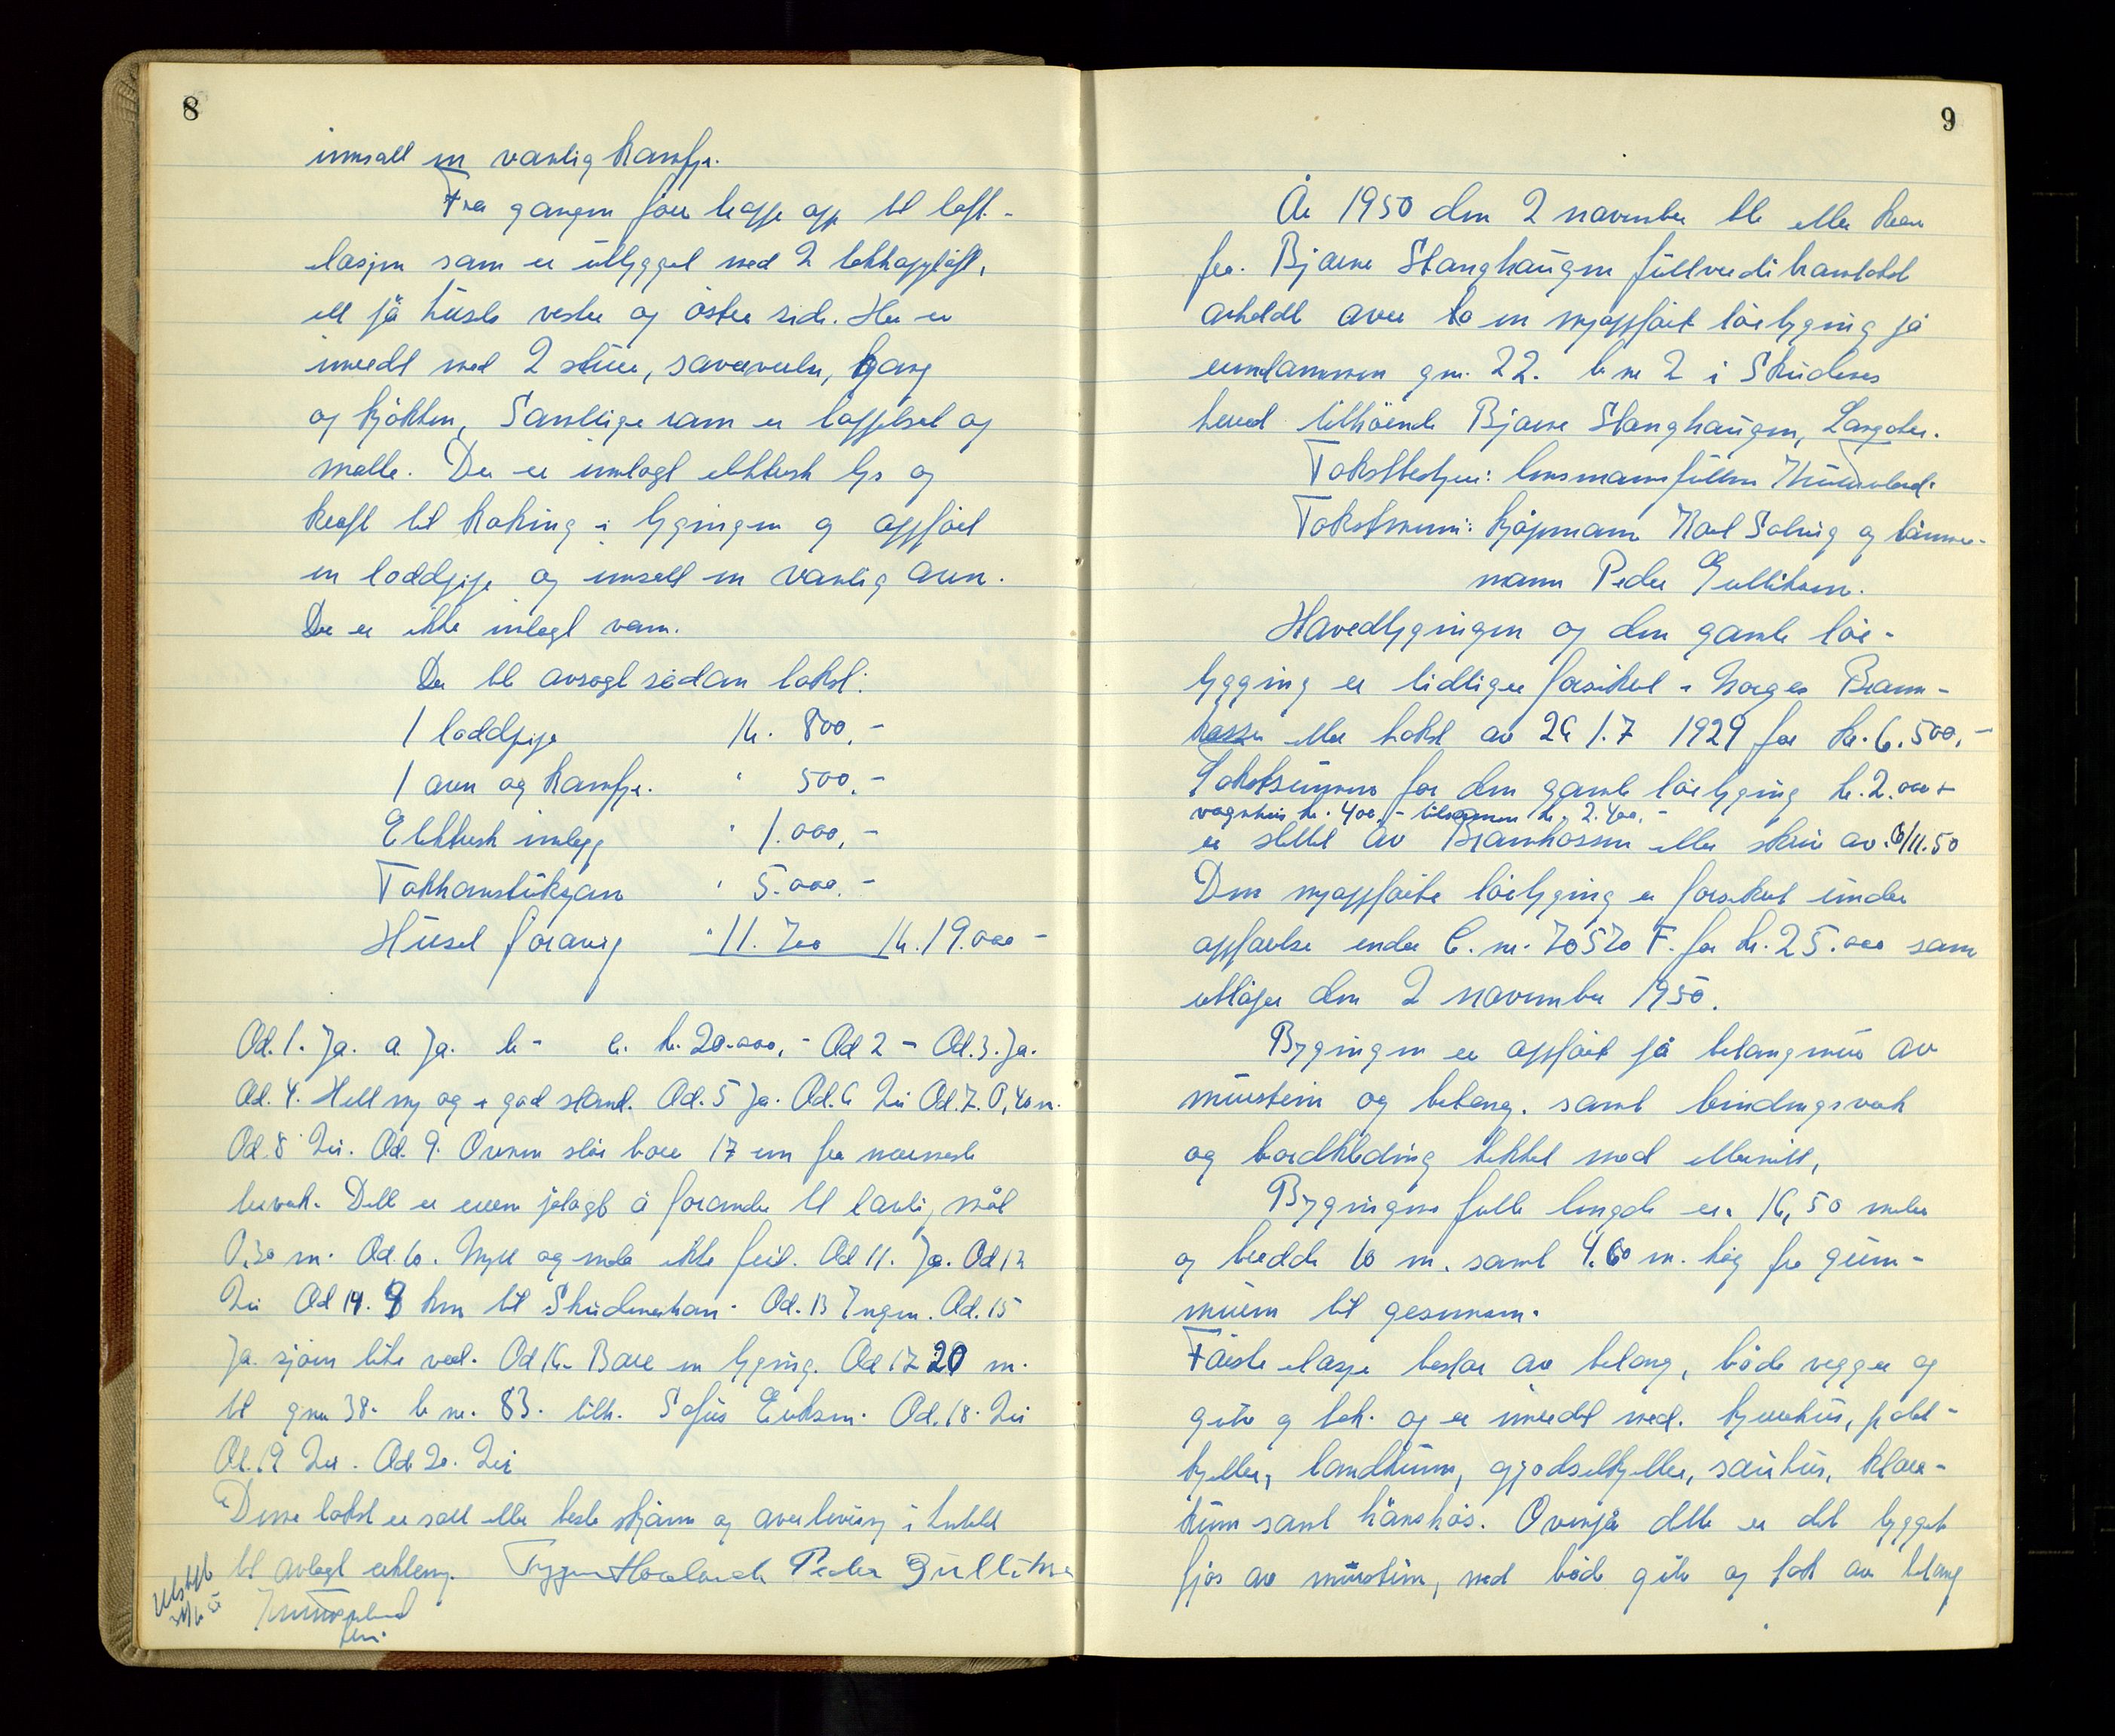 8
innsatt en vanlig kamfyr.
Fra gangen fører trapp opp til loft-
etasjen som er utbygget med 2 takkoppløft,
ett på husets vestre og østre side. Her er
innredt med 2 stuer, soveværelse, gang
og kjøkken, Samtlige rom er tappetsert og
malte. Der er innlagt elektrisk lys og
kraft til koking i bygningen og oppført
en loddpipe og innsatt en vanlig ovn.
Der er ikke inlagt vann.
Der ble avsagt sådan takst:
1 loddpipe kr. 800,-
1 ovn og kamfyr. " 500,-
Elektrisk innlegg " 1.000,-
Takkonstuksjon " 5.000.-
Huset forøvrig " 11.700 kr. 19.000-
Ad. 1. Ja. a Ja. b - c. kr. 20.000,- Ad 2 - Ad. 3. Ja.
Ad. 4. Helt ny og i god stand. Ad. 5 Ja. Ad. 6 Nei Ad. 7. 0,40 m.
Ad 8 Nei. Ad. 9. Ovnen står bare 17 cm fra nærmeste
treverk. Dett er eieren pålagt å forandre til lovlig mål
0,30 m. Ad. 10. Nytt og uten ikke feil. Ad 11. Ja. Ad 12
Nei Ad 14. 9 km til Skudeneshavn. Ad. 13 Ingen. Ad. 15
Ja. sjøen like ved. Ad 16. Bare en bygning. Ad 17 20 m.
til gnr 38. b nr. 83. tilh. Sofus Eriksen. Ad. 18. Nei
Ad. 19 Nei. Ad 20. Nei
Denne takst er satt etter beste skjønn og overbevisning i henhold
til avlagt erklæring. Peder Gullitsen
9
År 1950 den 2 november ble etter krav
fra. Bjarne Stanghaugen fullverdibranntakst
avholdt over to en nyoppført løebygning på
eiendommen gnr. 22. b nr 2 i Skudenes
herred tilhørende Bjarne Stanghaugen, Langåker.
Takstbestyrer: lensmannsfullm
Takstmenn: kjøpmann Karl Solvig og tømmer-
mann Peder Gullitsen.
Hovedbygningen og den gamle løe-
bygging er tidligere forsikret i Norges Brann-
kasse etter takst av 26/7 1929 for kr. 6.500,-
Takstsummen for den gamle løebygning kr. 2.000 +
vognhus kr. 400,- tilsammen kr. 2.400,-
er slettet av Brannkassen etter skriv av. 6/11.50
Den nyoppførte løebygning er forsikret under
oppførelse under C. nr. 70570 F. for kr. 25.000 som
utløper den 2 november 1950.
Bygningen er oppført på betongmur av
murstein og betong. samt bindingsverk
og bordkledning tekket med etternitt,
Bygningens fulle lengde er. 16,50 meter
og bredde 10 m. samt 4.60 m. høg fra grunn-
muren til gesimsen.
Første etasje består av betong, både vegger og
gulv og tak. og er innredt med. kjerrehus, potet-
kjeller, landkum, gjødselkjeller, sauehus, kloakk-
kum samt hønsehus. Ovenpå dette er det bygget
fjøs av murstein, med både gulv og tak av betong